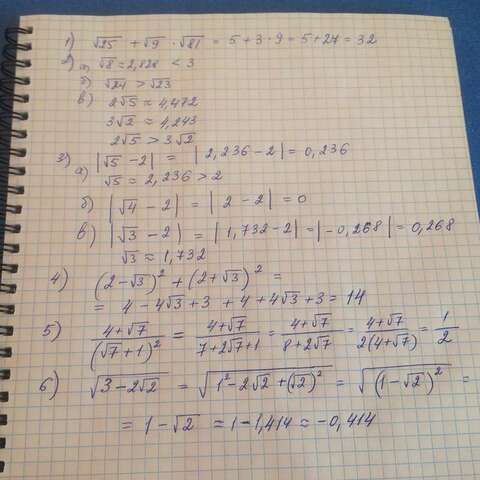 1) √25 + √9 · √81 = 5 + 3 · 9 = 5 + 27 = 32
2) а) √8 = 2,828 < 3
б) √24 > √23
в) 2√5 ≈ 4,472
3√2 ≈ 4,243
2√5 > 3√2
3) |√5 - 2| = |2,236 - 2| = 0,236
а) √5 = 2,236 > 2
б) |√4 - 2| = |2 - 2| = 0
в) |√3 - 2| = |1,732 - 2| = |-0,268| = 0,268
√3 ≈ 1,732
4) (2-√3)² + (2+√3)² =
= 4 - 4√3 + 3 + 4 + 4√3 + 3 = 14
5) (4+√7)/(√7+1)² = (4+√7)/(7+2√7+1) = (4+√7)/(8+2√7) = (4+√7)/(2(4+√7)) = 1/2
6) √(3-2√2) = √(1²-2√2+(√2)²) = √((1-√2)²) =
= 1 - √2 ≈ 1 - 1,414 ≈ -0,414